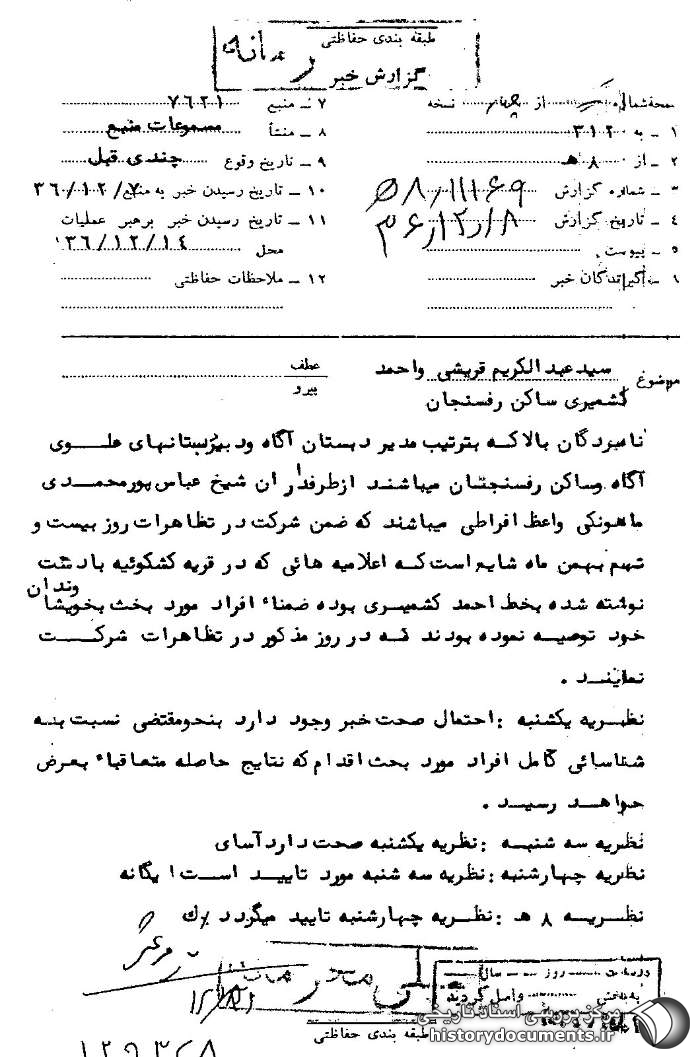 طبقه بندی حفاظتی
گزارش خبر
از نسخه
۷ – منبع ۷۶۲۱
۱ – به ۳۱۲
۸ – منشأ مسموعات منبع
۲ – از ۸هـ
۹ – تاریخ وقوع چندی قبل
۳ – شماره گزارش
۱۰ – تاریخ رسیدن خبر به منبع ۳۶/۱۲/۷
۴ – تاریخ گزارش ۳۶/۱۲/۱۸
۱۱ – تاریخ رسیدن خبر برهبر عملیات
محل ۳۶/۱۲/۱۴
۵ – پیوست
۶ – گیرندگان خبر
۱۲ – ملاحظات حفاظتی
موضوع سید عبدالکریم قریشی واحمد
کشمیری ساکن رفسنجان
عطف
پیرو
نامبردگان بالاکه بترتیب مدیر دبستان آگاه ودبیرستانهای علوی
آگاه وساکن رفسنجان میباشند ازطرفداران شیخ عباس پورمحمدی
ماهونکی واعظ افراطی میباشند که ضمن شرکت در تظاهرات روز بیست و
نهم بهمن ماه شایع است که اعلامیه هائی که در قریه کشکوئیه بادست
نوشته شده بخط احمد کشمیری بوده ضمناء افراد مورد بحث بخویشاوندان
خود توصیه نموده بودند که در روز مذکور در تظاهرات شرکت
نمایند .
نظریه یکشنبه : احتمال صحت خبر وجود دارد بنحومقتضی نسبت به
شناسائی کامل افراد مورد بحث اقدام که نتایج حاصله متعاقباء بعرض
خواهد رسید .
نظریه سه شنبه : نظریه یکشنبه صحت دارد آسای
نظریه چهارشنبه : نظریه سه شنبه مورد تایید است ! یگانه
نظریه ۸ هـ : نظریه چهارشنبه تایید میگردد
روز سال
به بخش واصل گردید
طبقه بندی حفاظتی
مرکز بررسی اسناد تاریخی
historydocuments.ir